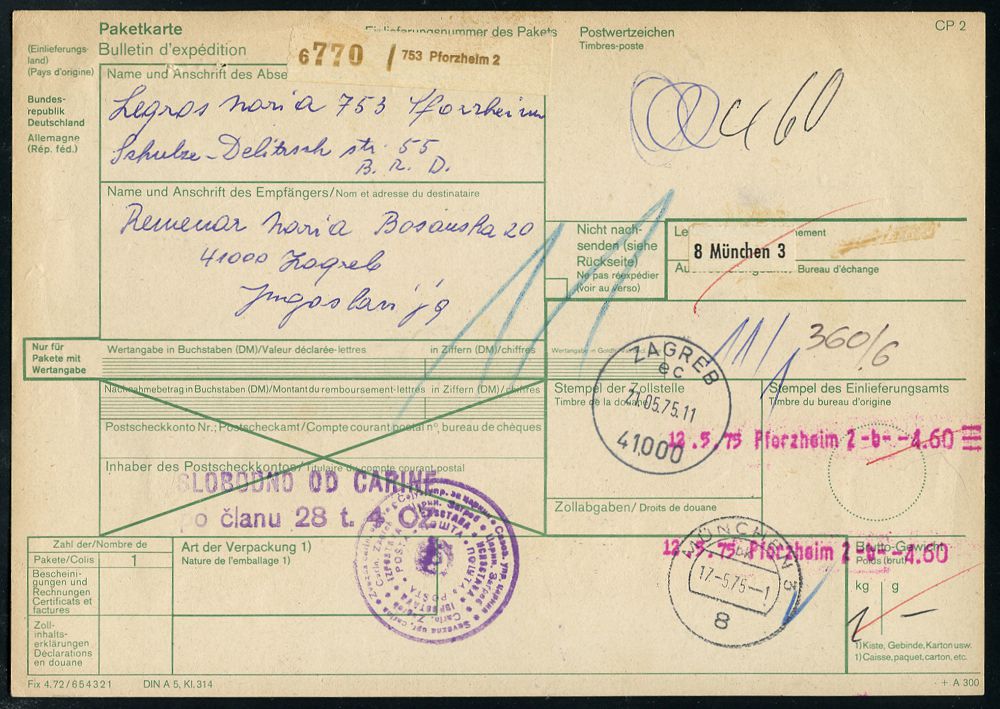 Paketkarte
Bulletin d'expédition
(Einlieferungs-
land)
(Pays d'origine)
Bundes-
republik
Deutschland
Allemagne
(Rép. féd.)
Einlieferungsnummer des Pakets
6770 753 Pforzheim 2
Postwertzeichen
Timbres-poste
CP 2
460
Name und Anschrift des Abse
Legros Maria 753 Pforzheim
Schulze-Delitzsch str. 55
B. R. D.
Name und Anschrift des Empfängers/Nom et adresse du destinataire
Remenar Maria Bosanska 20
41000 Zagreb
Jugoslavija
Nicht nach-
senden (siehe
Rückseite)
Ne pas réexpédier
(voir au verso)
8 München 3
Bureau d'échange
11/1
111/
360/6
Nur für
Pakete mit
Wertangabe
Wertangabe in Buchstaben (DM)/Valeur déclarée-lettres
in Ziffern (DM)/chiffres
Nachnahmebetrag in Buchstaben (DM)/Montant du remboursement-lettres
in Ziffern (DM)/chiffres
Postscheckkonto Nr.; Postscheckamt/Compte courant postal n°, bureau de chèques
Inhaber des Postscheckkontos/Titulaire du compte courant postal
Stempel der Zollstelle
Timbre de la douane
ZAGREB
ec
21.05.75.11
41000
Stempel des Einlieferungsamts
Timbre du bureau d'origine
12.5.75 Pforzheim 2-b- -4.60
Zollabgaben/Droits de douane
SLOBODNO OD CARINE
po članu 28 t. 4 OZ
POSTA
Zahl der/Nombre de
Pakete/Colis
1
Art der Verpackung 1)
Nature de l'emballage 1)
Bescheini-
gungen und
Rechnungen
Certificats et
factures
Zoll-
inhalts-
erklärungen
Déclarations
en douane
MÜNCHEN 3
17.-5.75-1
8
12.5.75 Pforzheim 2-b- -4.60
Brutto-Gewicht
Poids (brut)
kg g
2 -
1) Kiste, Gebinde, Karton usw.
1) Caisse, paquet, carton, etc.
Fix 4.72/654321
DIN A 5, Kl. 314
- + A 300